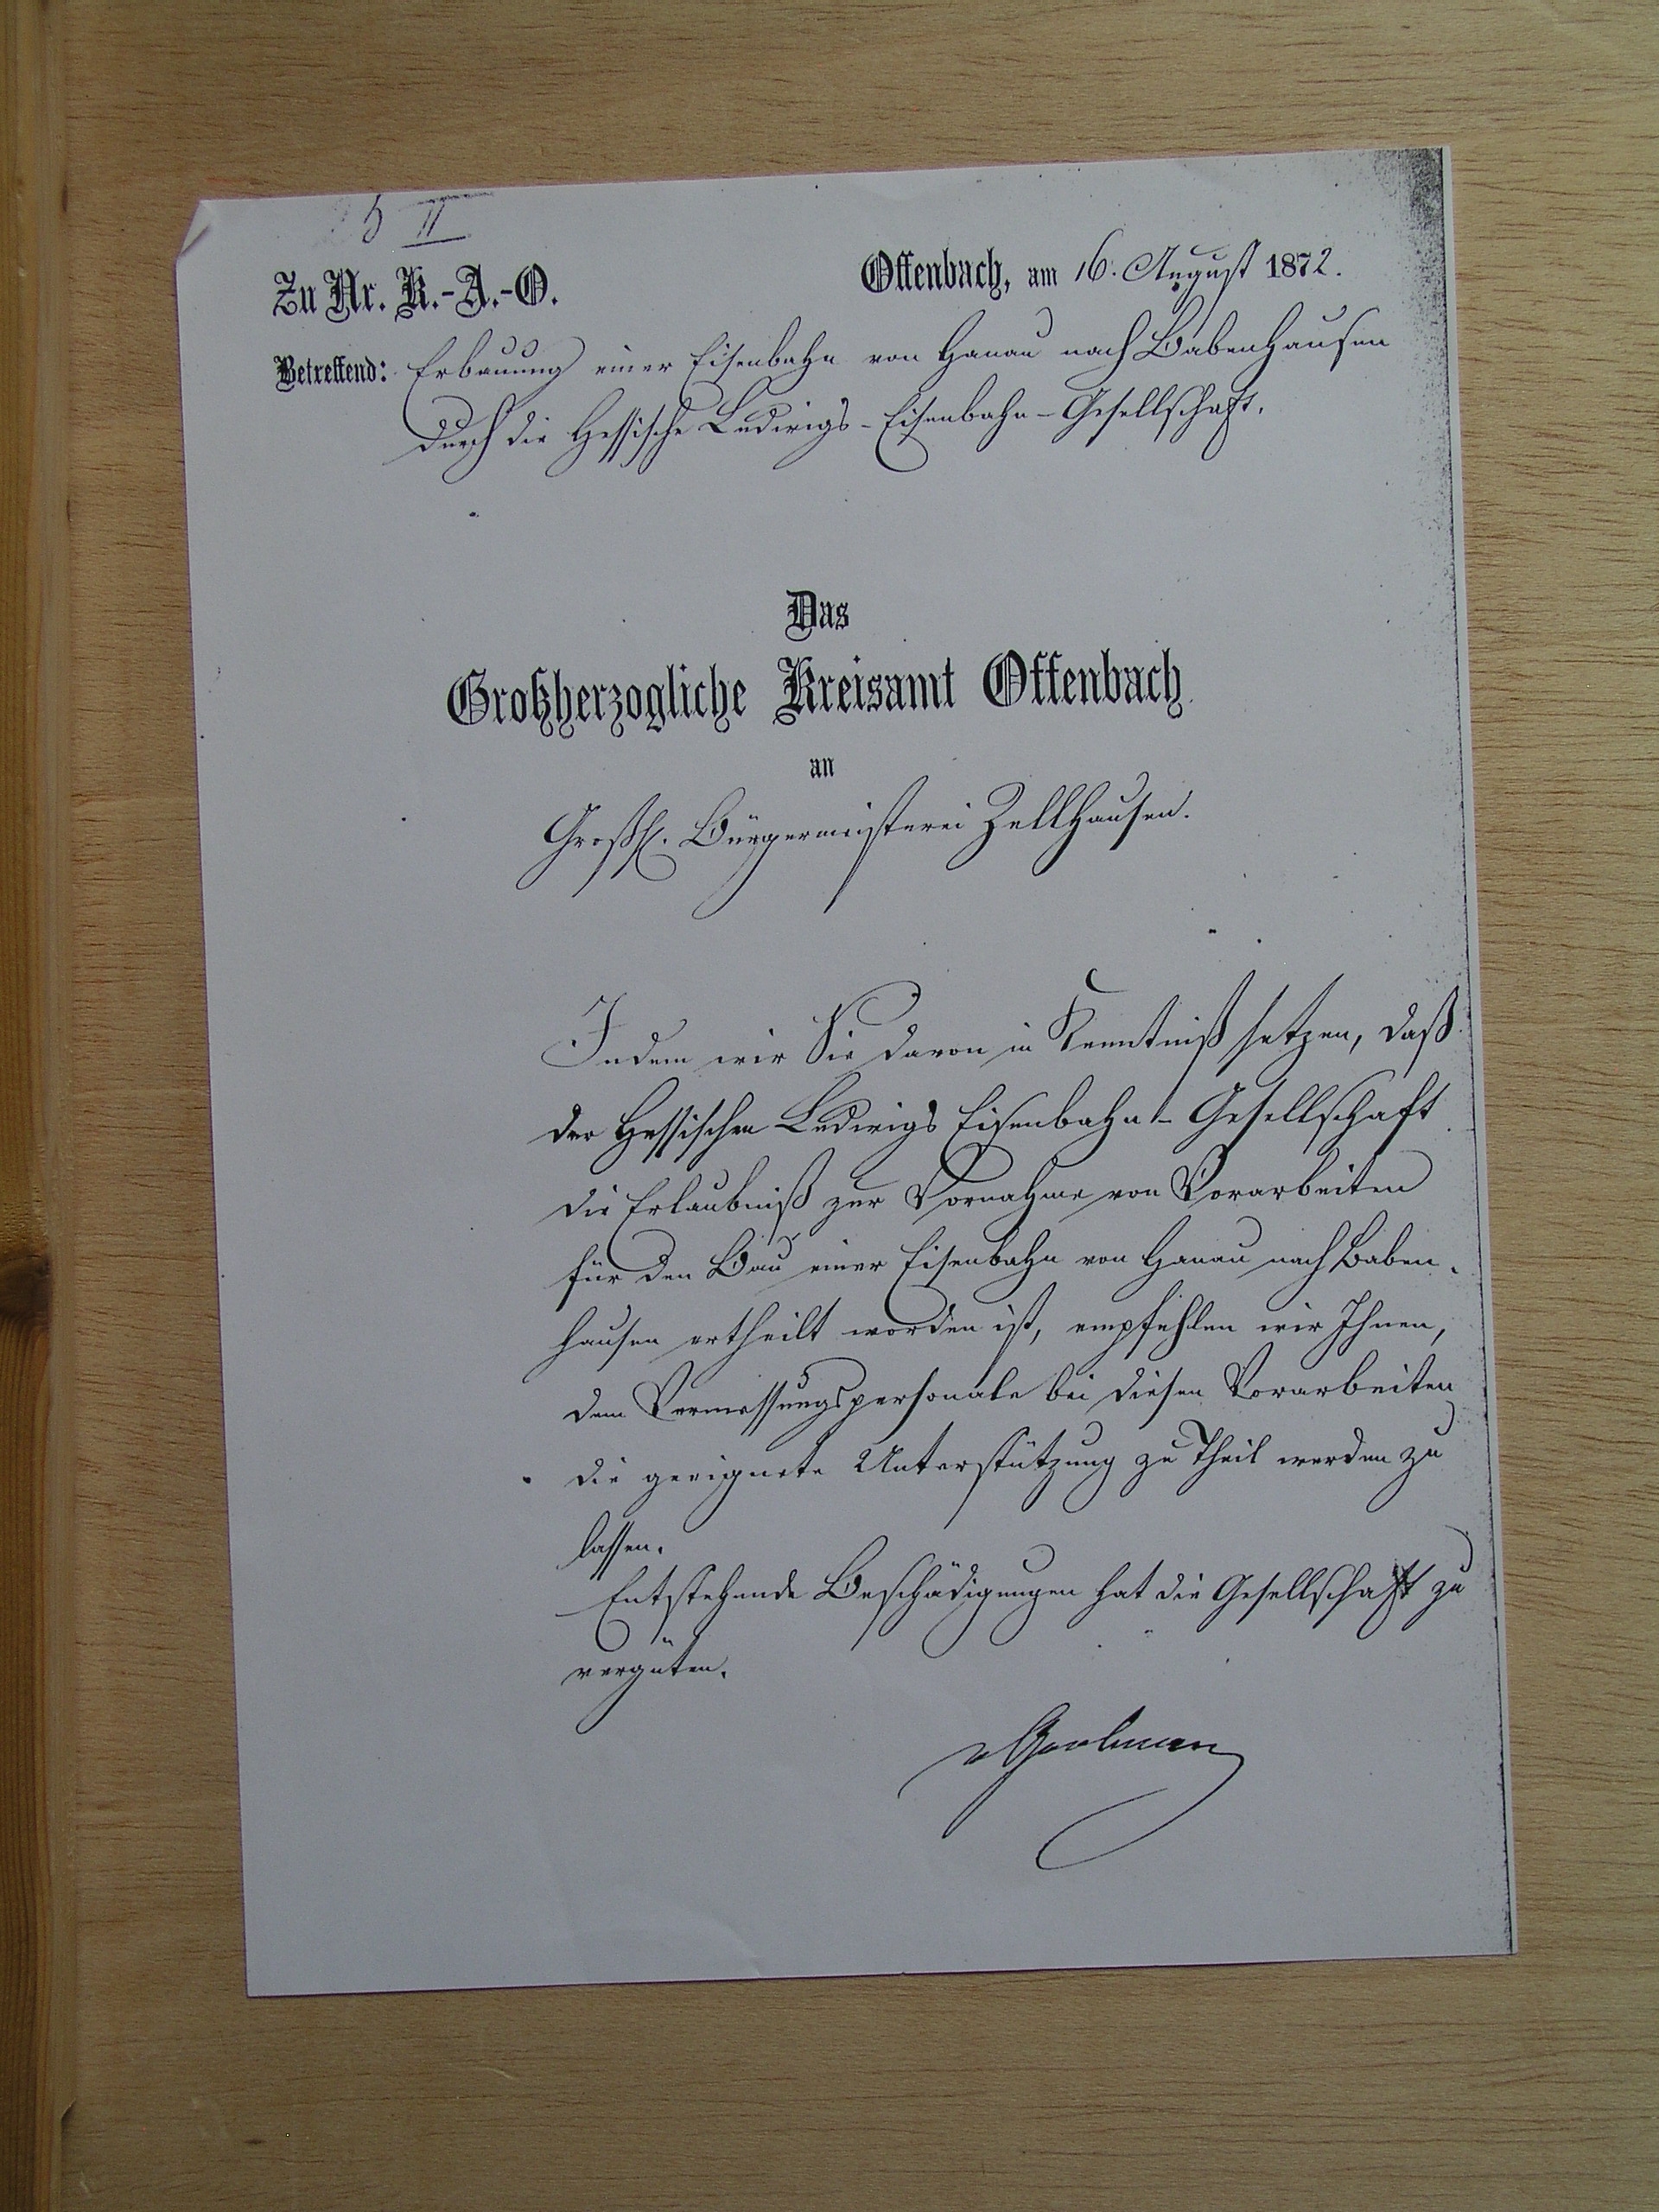 5 II
Zu Nr. K.-A.-O.
Offenbach, am 16. August 1872.
Betreffend: Erbauung einer Eisenbahn von Hanau nach Babenhausen
durch die Hessische Ludwigs-Eisenbahn-Gesellschaft.
Das
Großherzogliche Kreisamt Offenbach
an
Großh. Bürgermeisterei Zellhausen.
Indem wir Sie davon in Kenntniß setzen, daß
der Hessischen Ludwigs Eisenbahn-Gesellschaft
die Erlaubniß zur Vornahme von Vorarbeiten
für den Bau einer Eisenbahn von Hanau nach Baben-
hausen ertheilt worden ist, empfehlen wir Ihnen,
dem Vermessungspersonale bei diesen Vorarbeiten
die geeignete Unterstützung zu Theil werden zu
lassen.
Entstehende Beschädigungen hat die Gesellschaft zu
vergüten.